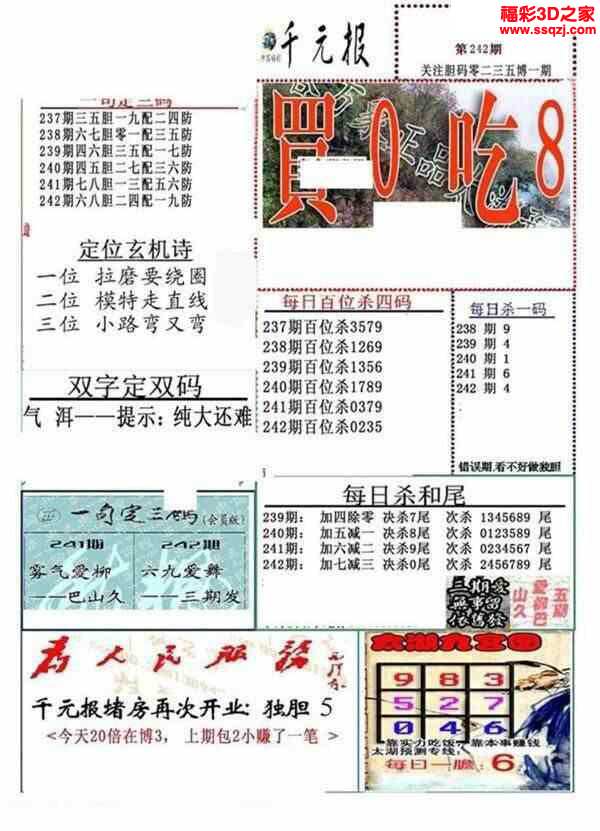 福彩3D之家
www.ssqzj.com
千元报
第242期
关注胆码零二三五博一期
買0吃8
一句定三码
237期三五胆一九配二四防
238期六七胆零一配三五防
239期四六胆三五配一七防
240期四五胆二七配三六防
241期七八胆一三配五六防
242期六八胆二四配一九防
定位玄机诗
一位 拉磨要绕圈
二位 模特走直线
三位 小路弯又弯
每日百位杀四码
237期百位杀3579
238期百位杀1269
239期百位杀1356
240期百位杀1789
241期百位杀0379
242期百位杀0235
每日杀一码
238 期 9
239 期 4
240 期 1
241 期 6
242 期 4
错误期,看不好做独胆
双字定双码
气 洱——提示:纯大还难
一句定三码(会员版)
241期
雾气爱柳
——巴山久
242期
六九爱舞
——三期发
每日杀和尾
239期: 加四除零 决杀7尾 次杀 1345689 尾
240期: 加五减一 决杀8尾 次杀 0123589 尾
241期: 加六减二 决杀9尾 次杀 0234567 尾
242期: 加七减三 决杀0尾 次杀 2456789 尾
三期爱
五期
爱柳巴
山久
为人民服务
千元报堵房再次开业: 独胆 5
<今天20倍在博3, 上期包2小赚了一笔>
太湖九宫图
9 8 3
5 2 7
0 4 6
靠实力吃饭,靠本事赚钱
太湖预测专线:
每日一胆: 6